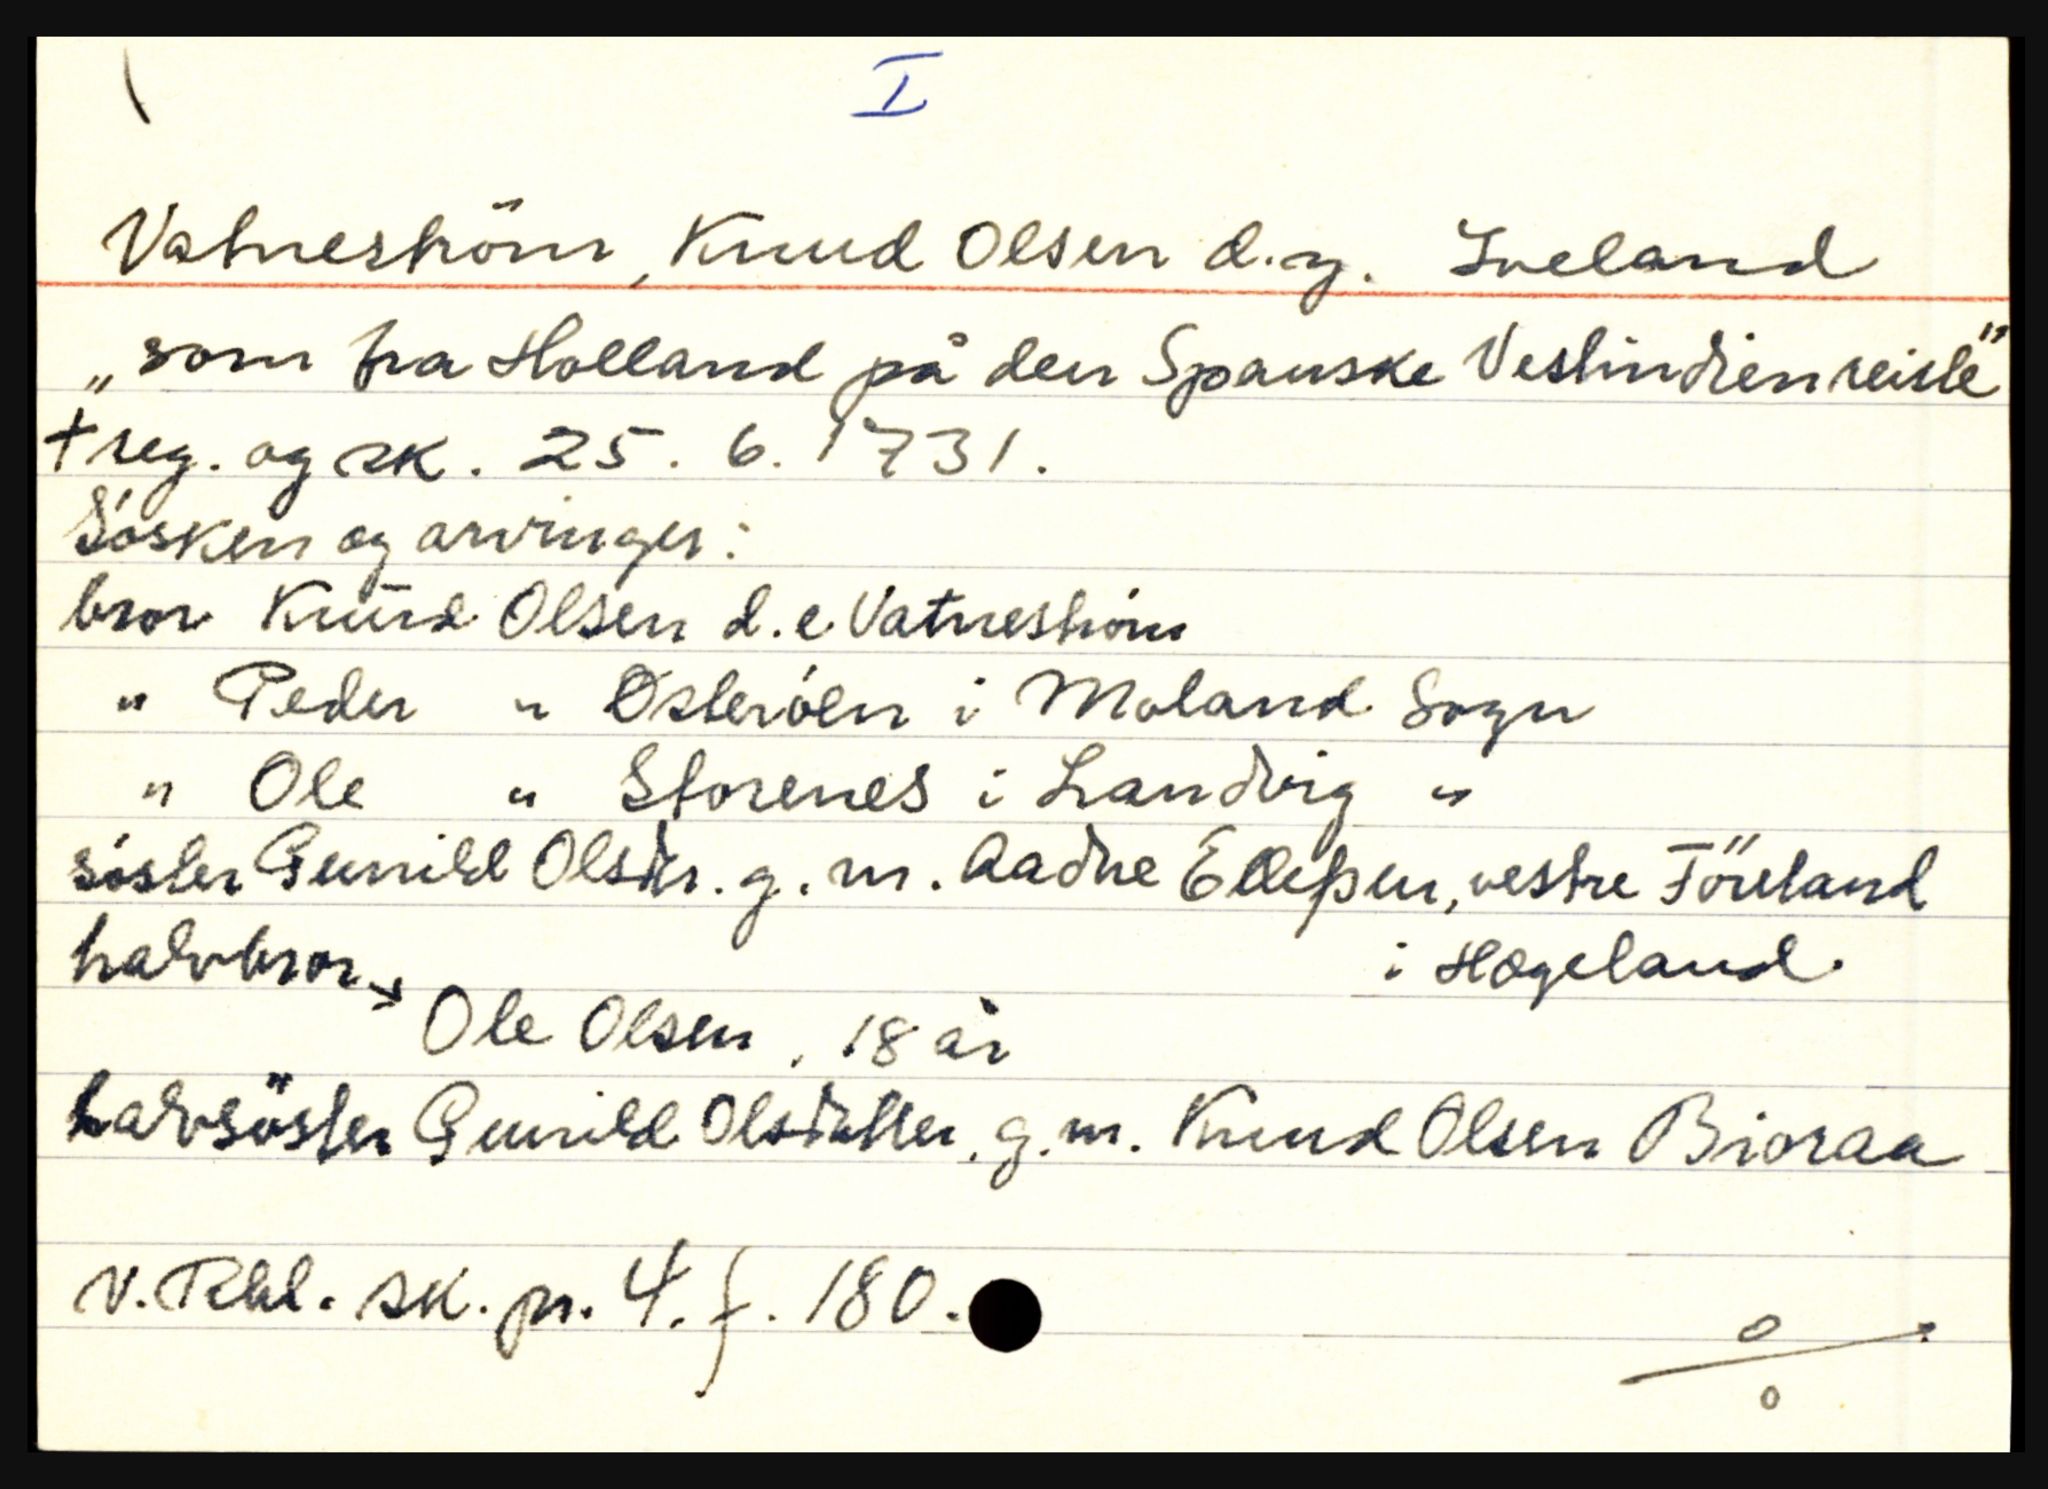 I
Vatneström, Knud Olsen d.y. Iveland
„som fra Holland på den Spanske Vestindien reiste"
+ reg. og sk. 25. 6. 1731.
Søsken og arvinger:
bror Knud Olsen d.e. Vatneström
" Peder " Osteröen i Moland Sogn
" Ole " Storenes i Landvig "
søster Gunild Olsdtr. g.m. Aadne Elleßen, vestre Föreland
halvbror → i Hægeland.
Ole Olsen, 18 år
halvsöster Gunild Olsdatter, g.m. Knud Olsen Bioraa
V. Rbl. sk. pr. 4. f. 180.
o/o